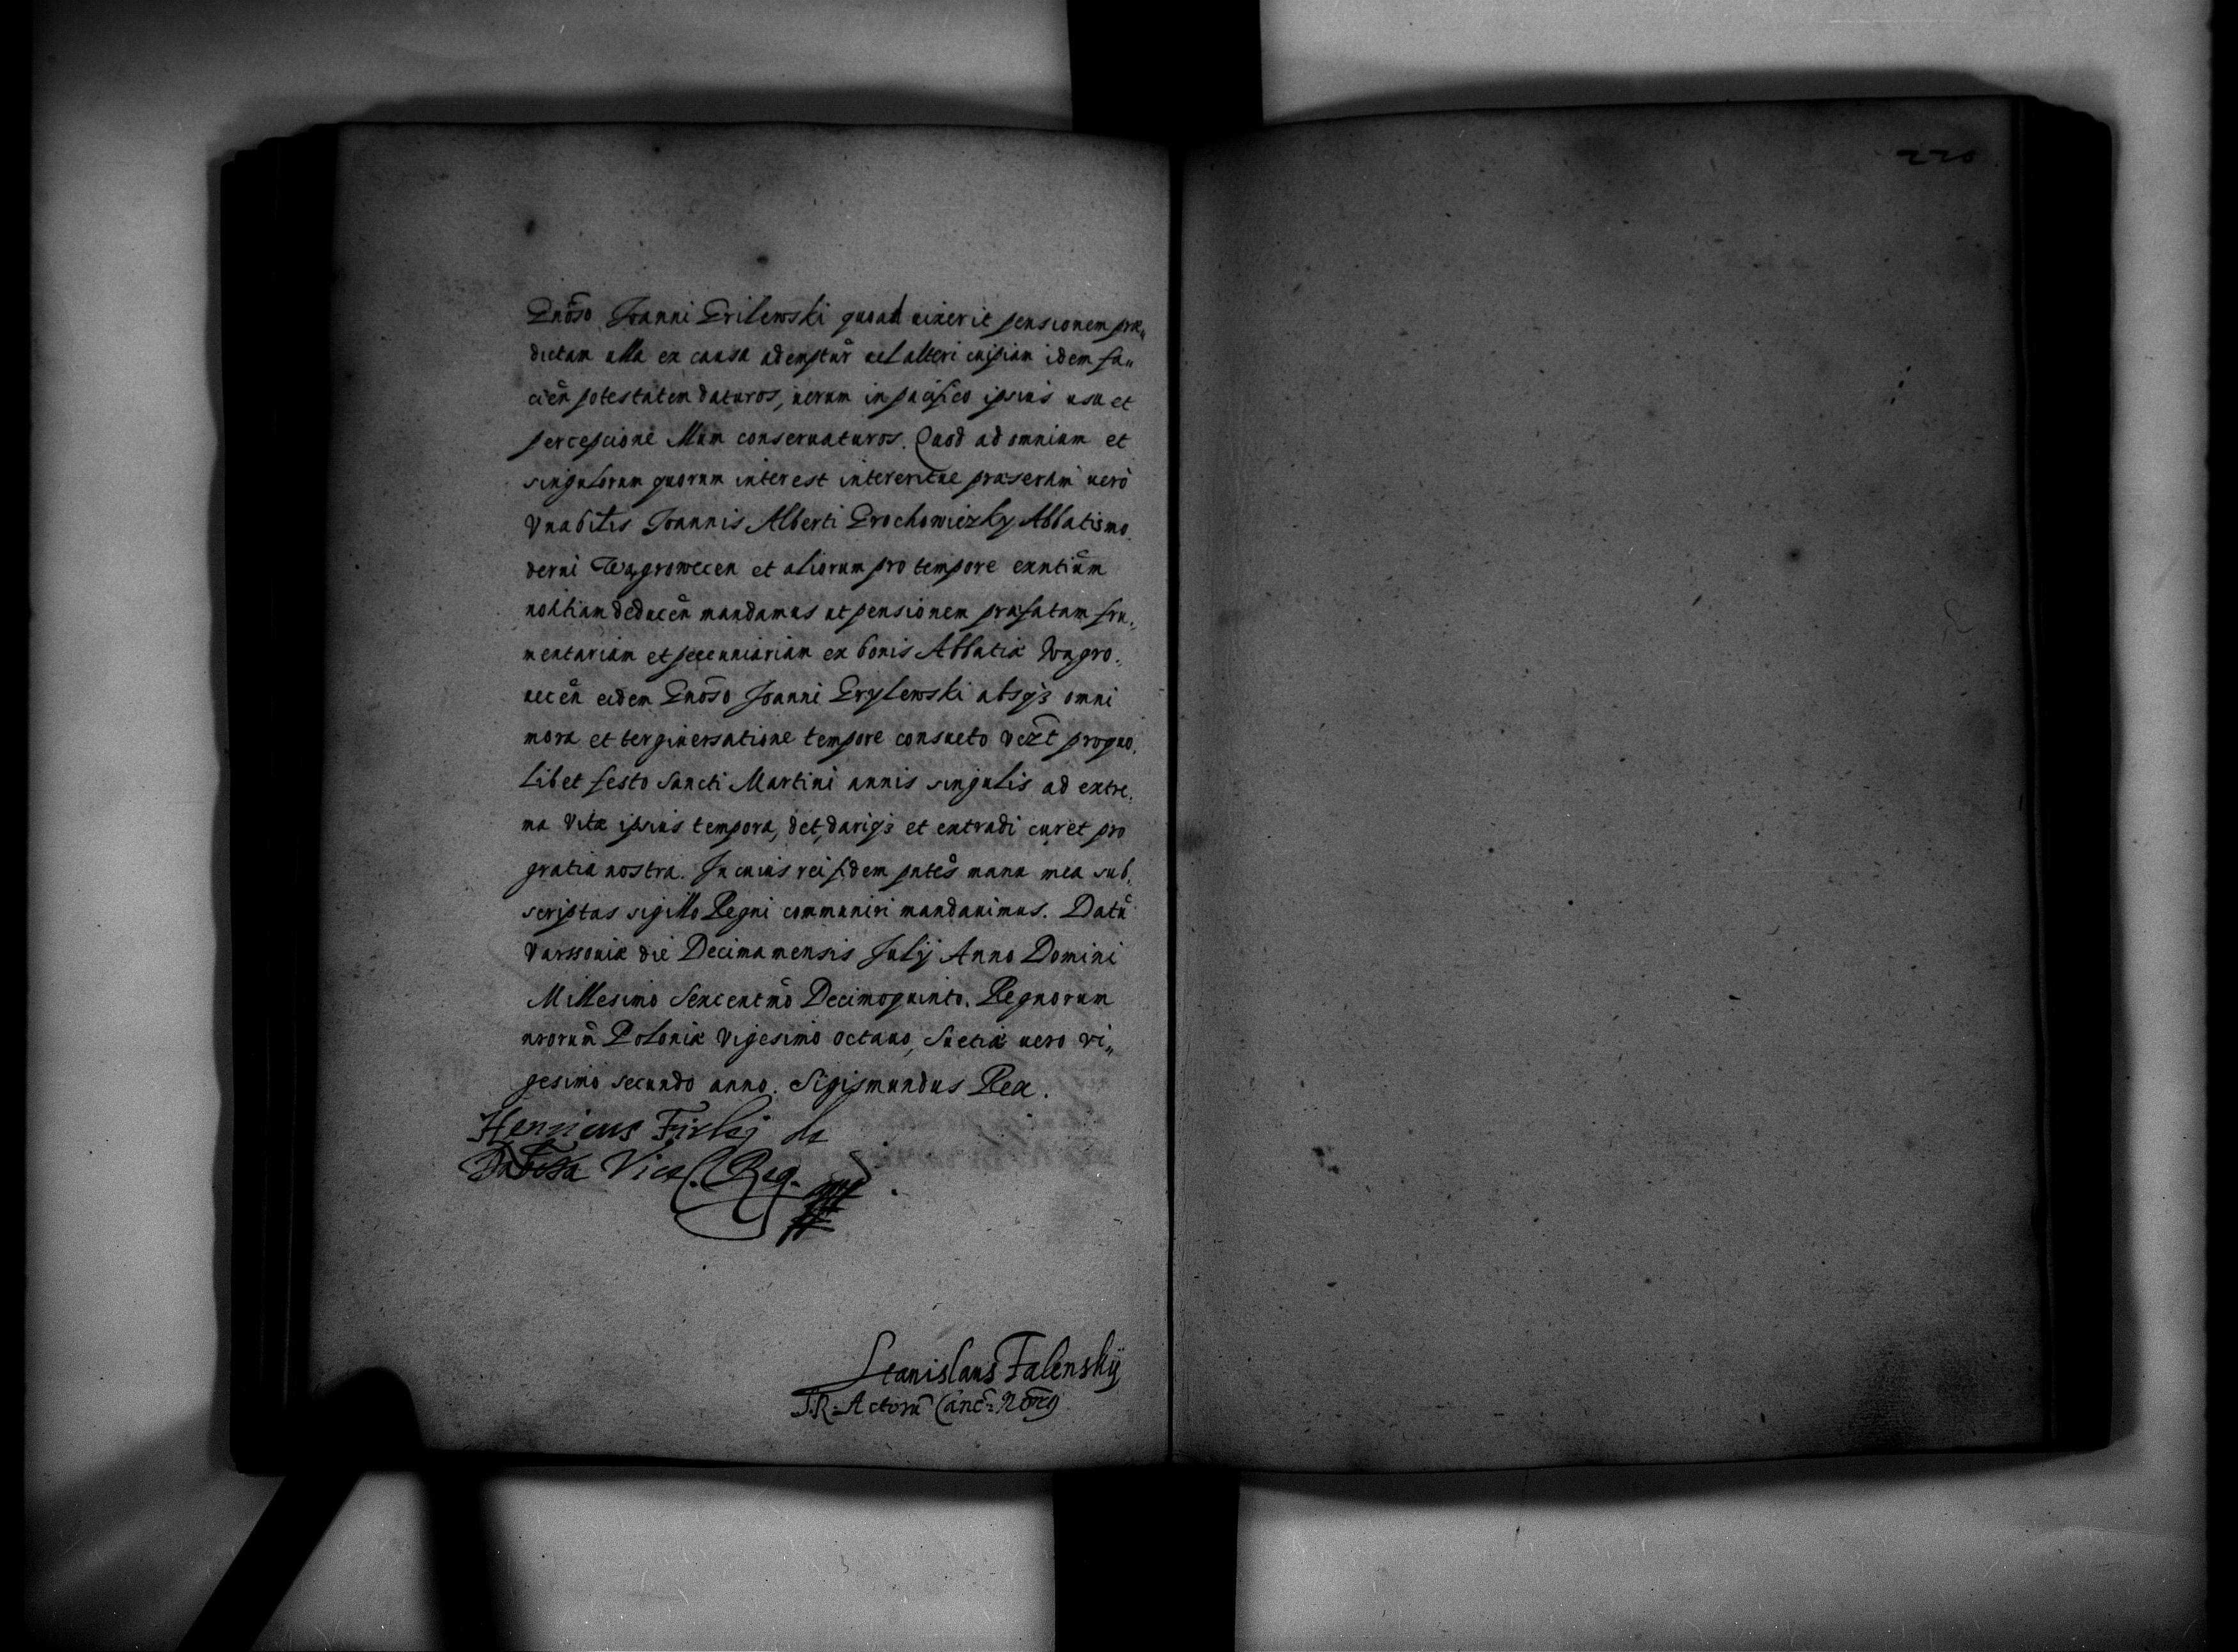 220
Gnōso Joanni Grilewski quoad uixerit pensionem præ„
dictam ulla ex causa adempturͦ uel alteri cuipiam idem fa„
cien̊ potestatem daturos, uerum in pacifico ipsius usu et
percepcione illum conseruaturos. Quod ad omnium et
singulorum quorum interest intereritue præsertim uerò
Vnabilis Joannis Alberti Grochowiezky Abbatis mo„
derni Wągrowecen et aliorum pro tempore exntiům
notitiam deducen̊ mandamus ut pensionem præfatam fru„
mentariam et pecuniariam ex bonis Abbatiæ Wągro„
uecen̊ eidem Gnōso Joanni Grylewski absqꝫ omni
mora et tergiuersatione tempore consueto vezt̄ pro quo„
libet festo Sancti Martini annis singulis ad extre„
ma vitæ ipsius tempora, det, dariqꝫ et extradi curet pro
gratia nostra. In cuius rei fidem pntes̊ manu mea sub„
scriptas sigillo Regni communiri mandauimus. Datů
Varssouiæ die Decima mensis Julij Anno Domini
Millesimo Sexcentmͦo Decimoquinto. Regnorum
nrorum̊ Poloniæ Vigesimo octauo, Suetiæ uero vi„
gesimo secundo anno. Sigismundus Rex.
Henricus Firleij de
Dabrowica Vice C. Reg.
Stanislaus Falenskÿ
S. R. Actorū Canc: Nōrg